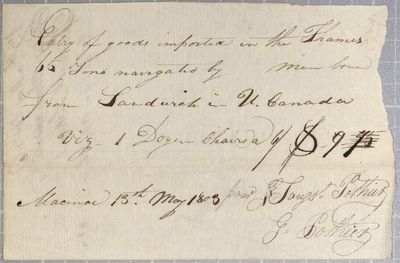 Entry of goods imported in the Thames
Tons navigated by men bound
from Sandwich in U. Canada
Viz 1 Dozen Chairs a $ 9
Macinac 13th May 1803
G. Pothier